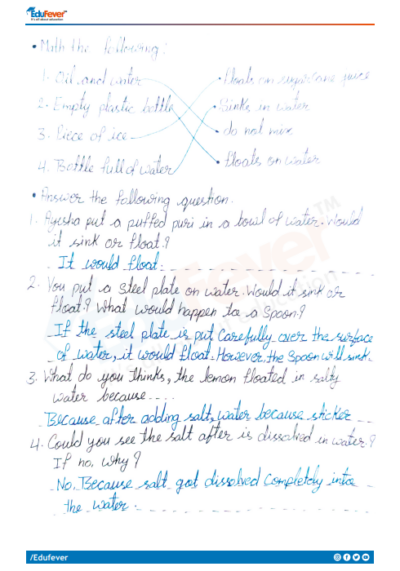 EduFever
• Math the following:
1. Oil and water • floats on sugarcane juice
2. Empty plastic bottle • Sinks in water
3. Piece of ice • do not mix
4. Bottle full of water • floats on water
• Answer the following question.
1. Ayesha put a puffed puri in a bowl of water. Would
it sink or float?
It would float.
2. You put a steel plate on water. Would it sink or
float? What would happen to a Spoon?
If the steel plate is put Carefully over the surface
of water, it would float. However, the Spoon will sink.
3. What do you thinks, the lemon floated in salty
water because....
Because after adding salt, water because thicker
4. Could you see the salt after is dissolved in water?
If no, why?
No. Because salt got dissolved Completely into
the water.
/Edufever